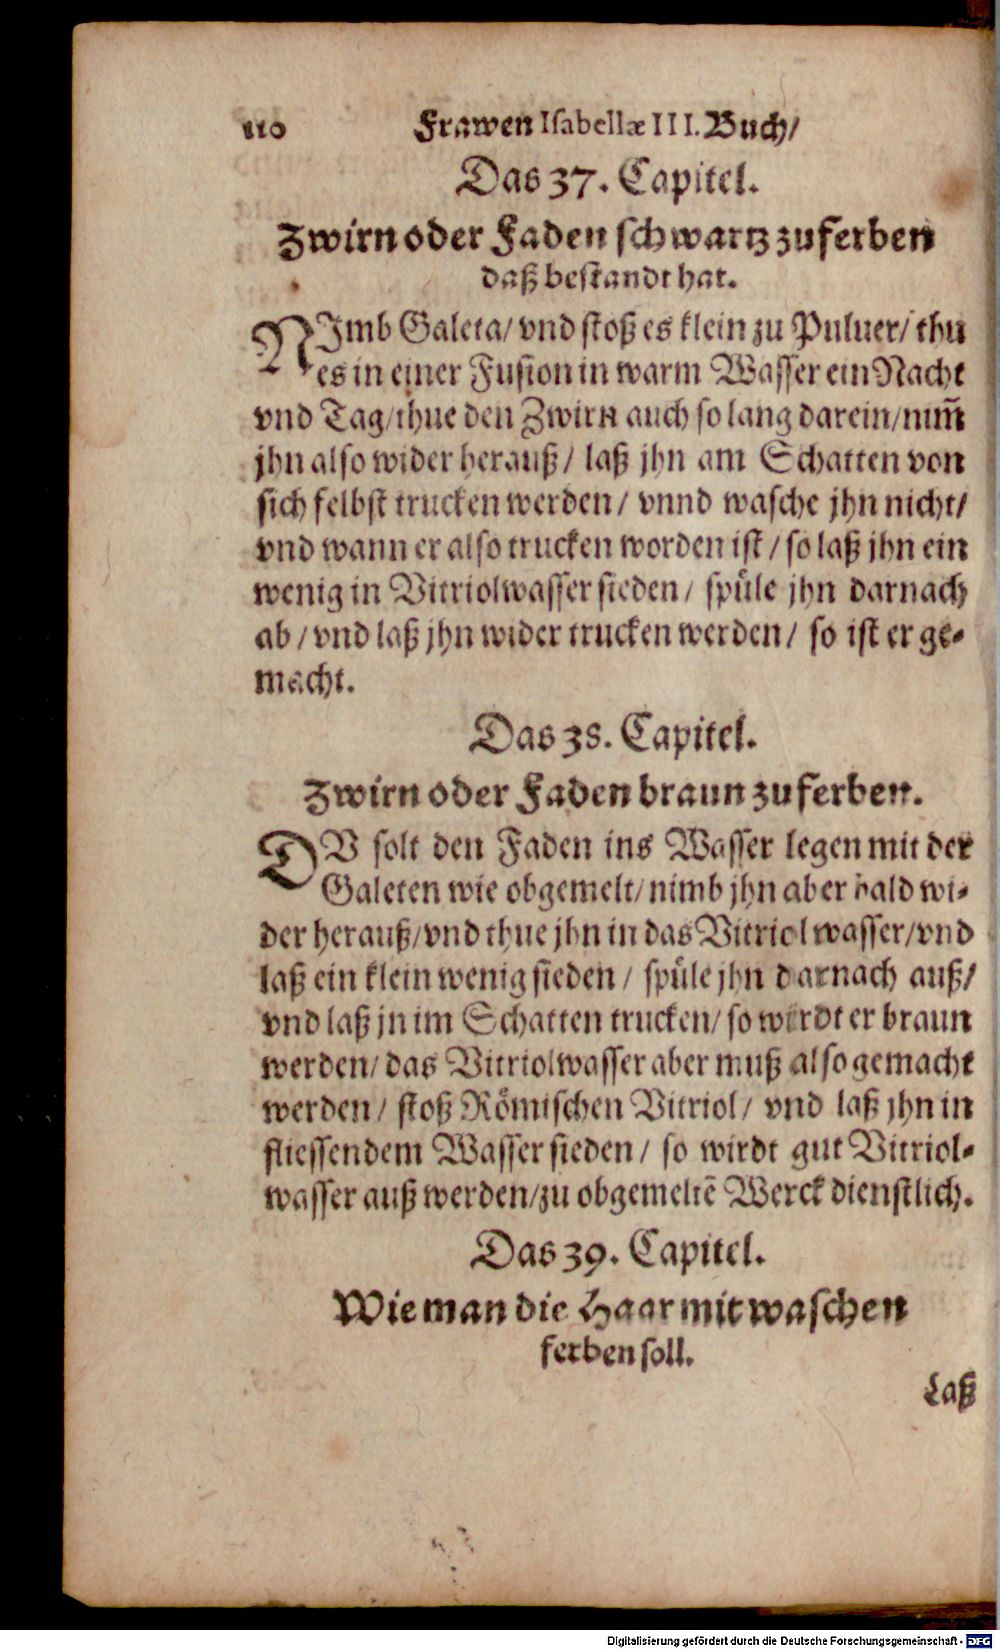 110 Frawen Isabellæ III. Buch/
Das 37. Capitel.
Zwirn oder Faden schwartz zu ferben
daß bestandt hat.
NImb Galeta/ vnd stoß es klein zu Puluer/ thu
es in einer Fusion in warm Wasser ein Nacht
vnd Tag/ thue den Zwirn auch so lang darein/ nim̃
jhn also wider herauß/ laß jhn am Schatten von
sich selbst trucken werden/ vnnd wasche jhn nicht/
vnd wann er also trucken worden ist/ so laß jhn ein
wenig in Vitriolwasser sieden/ spüle jhn darnach
ab/ vnd laß jhn wider trucken werden/ so ist er ge-
macht.
Das 38. Capitel.
Zwirn oder Faden braun zu ferben.
DV solt den Faden ins Wasser legen mit der
Galeten wie obgemelt/ nimb jhn aber bald wi-
der herauß/ vnd thue jhn in das Vitriol wasser/ vnd
laß ein klein wenig sieden/ spüle jhn darnach auß/
vnd laß jn im Schatten trucken/ so wirdt er braun
werden/ das Vitriolwasser aber muß also gemacht
werden/ stoß Römischen Vitriol/ vnd laß jhn in
fliessendem Wasser sieden/ so wirdt gut Vitriol-
wasser auß werden/ zu obgemeltē Werck dienstlich.
Das 39. Capitel.
Wie man die Haar mit waschen
ferben soll.
Laß
Digitalisierung gefördert durch die Deutsche Forschungsgemeinschaft - DFG